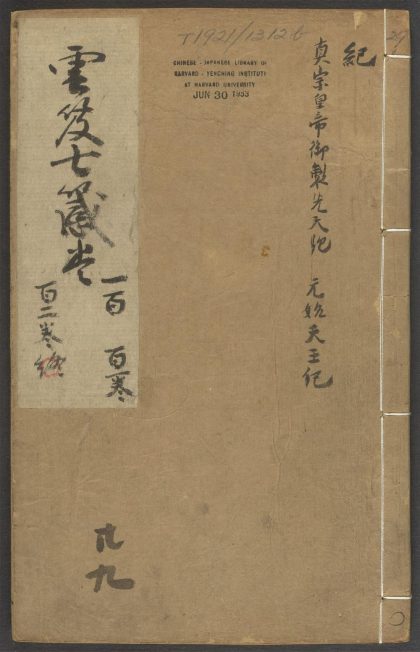 T1921/1312b
29
CHINESE - JAPANESE LIBRARY OF
HARVARD - YENCHING INSTITUTE
AT HARVARD UNIVERSITY
JUN 30 1933
紀
真宗皇帝御製先天紀 元始天王紀
雲笈七籤卷
一百 百一卷
百二卷
卄九